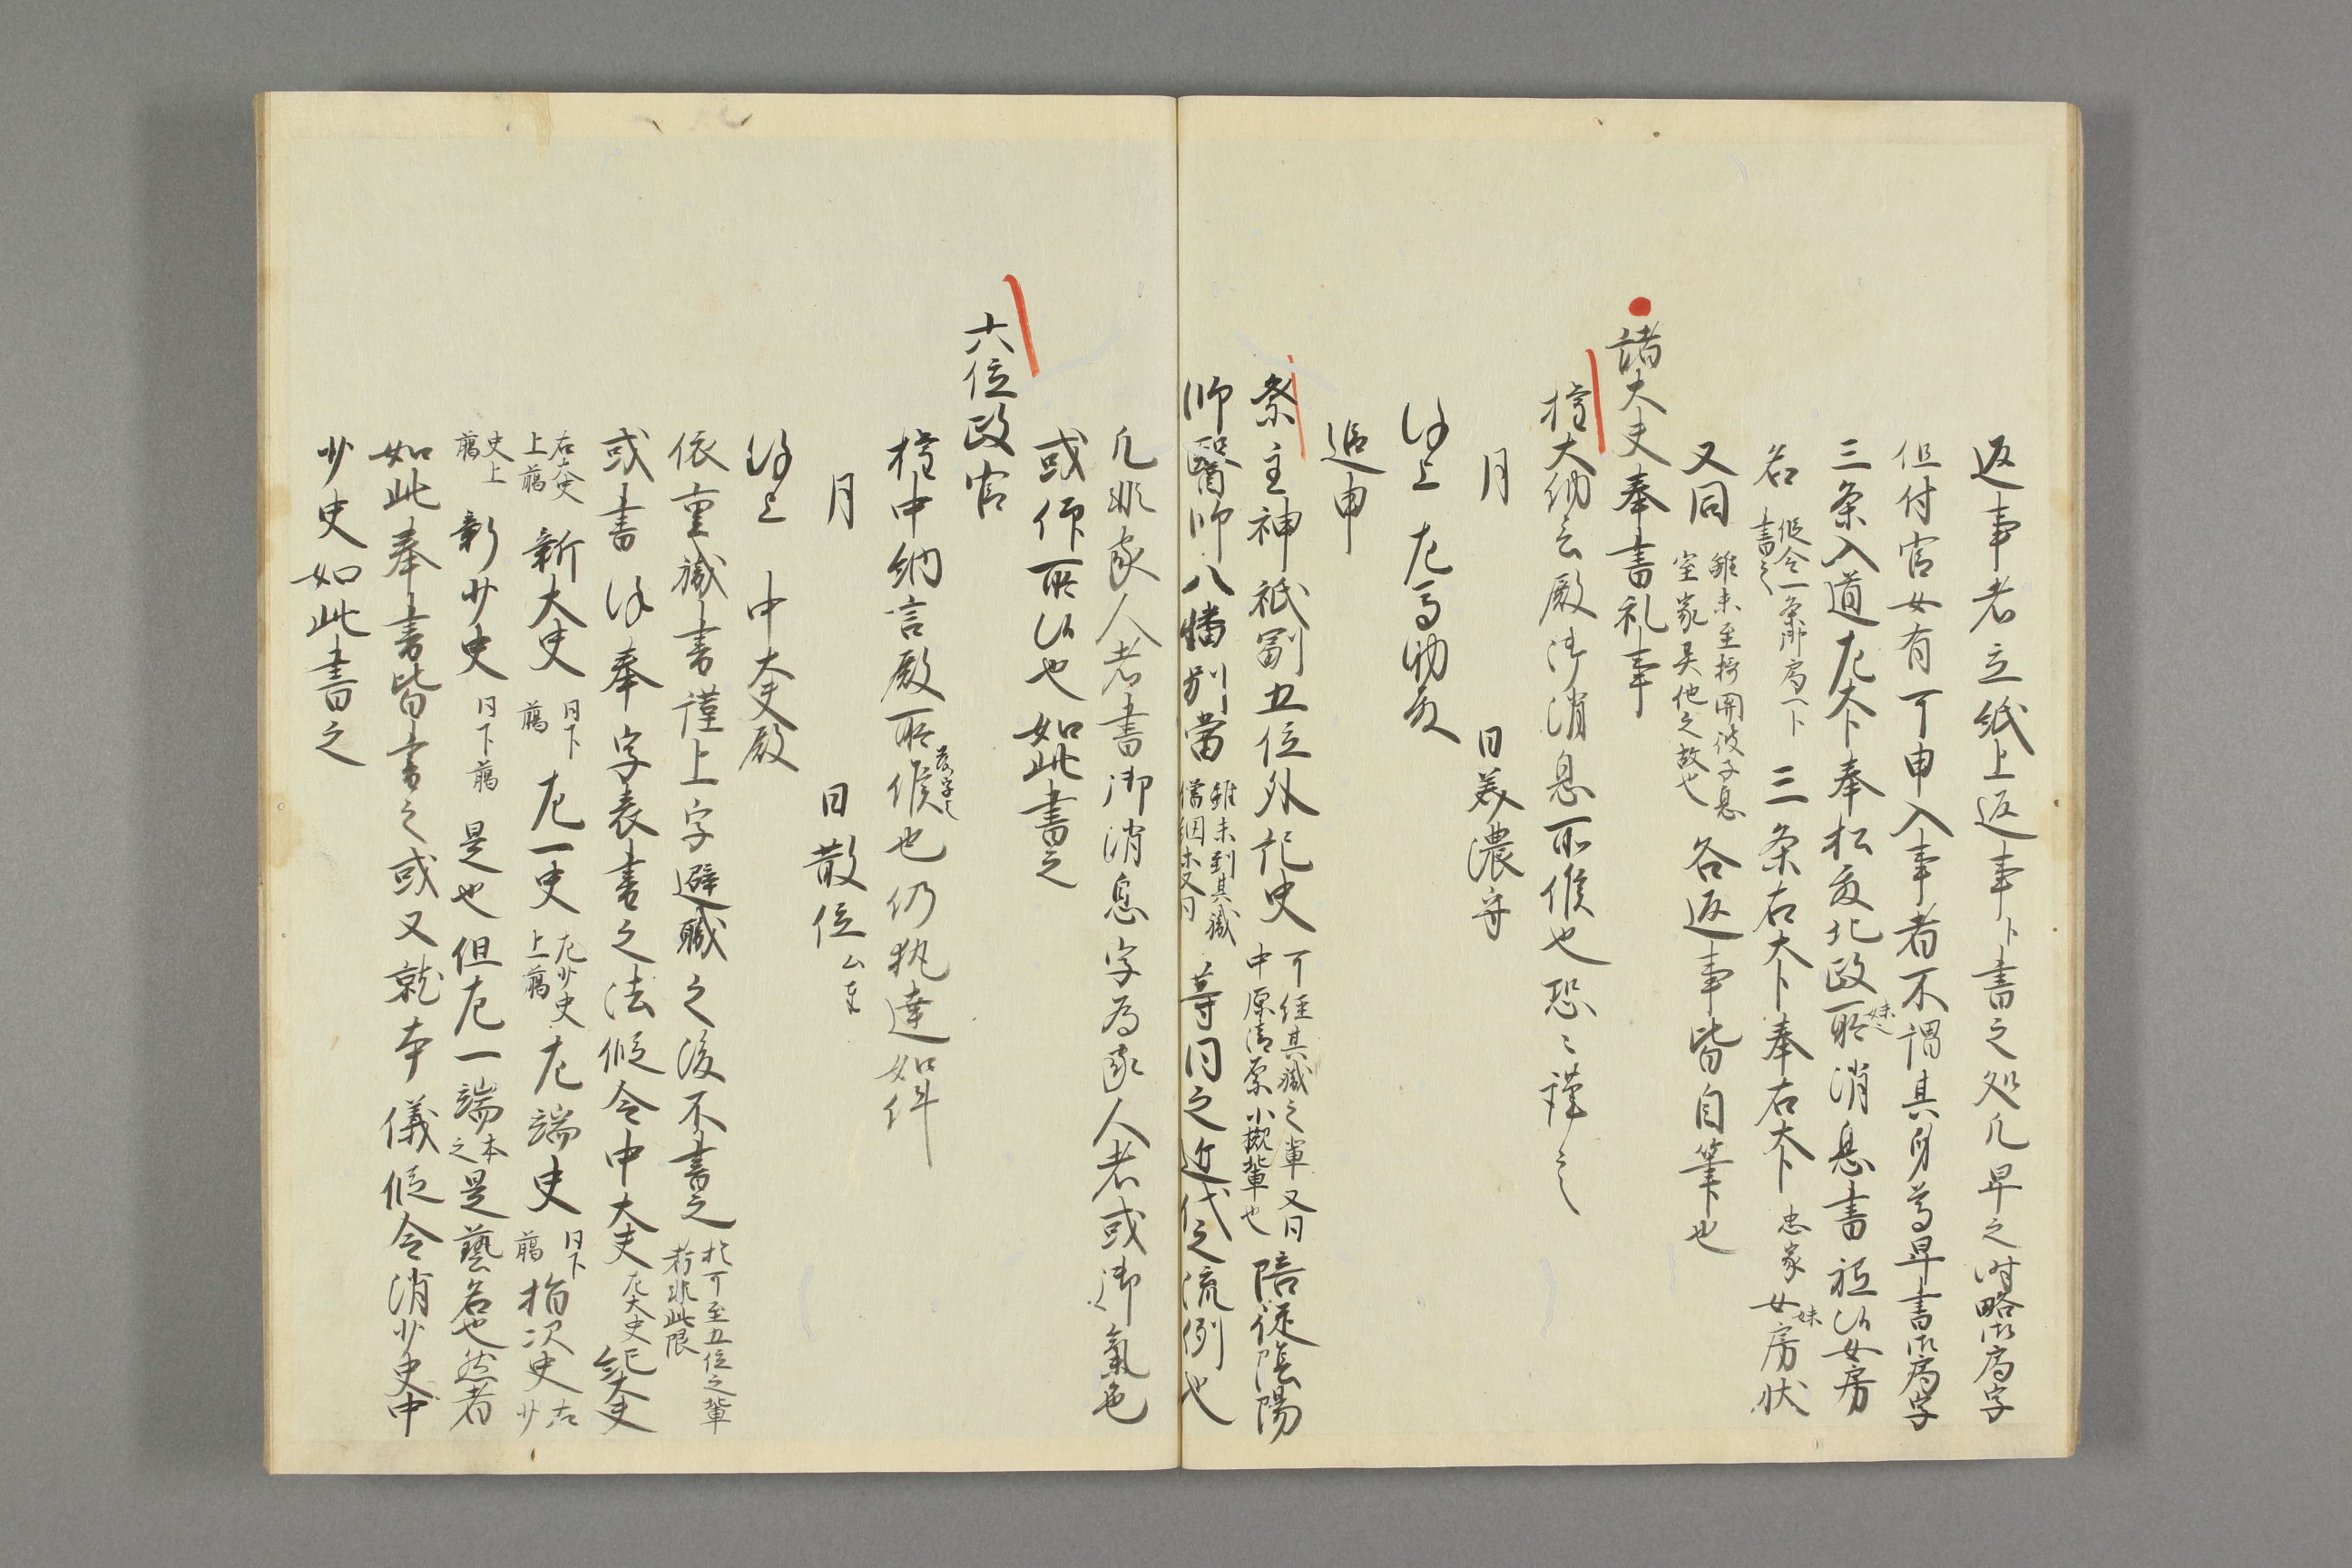 返事者立紙上返事卜書之処凡卑之時略御局字
但付官女有可申入事者不謂其身尊卑書御局字
三条入道左大卜奉松殿北政所消息書祗候女房
妹也
名
仮令一条御局一卜
書之
三条右大卜奉右大卜
忠家
女房状
妹
又同
雖未至披開彼子息
室家異他之故也
各返事皆自筆也
諸大夫奉書礼事
権大納言殿御消息所候也恐々謹言
月　日美濃守
謹上　左馬助殿
追申
祭主神祇副五位外記史
可経其職之輩又同
中原清原小槻輩也
陪従陰陽
師醫師八幡別當
雖未到其職
僧綱未又同
等同之近代之流例也
凡非家人者書御消息字為家人者或御氣色
或仰所候也如此書之
六位政官
権中納言殿所候也仍執達如件
月　日散位
謹上　中大夫殿
依重職書謹上字避職之後不書之
於可至五位之輩
者非此限
或書謹奉字表書之法仮令中大夫
左大史
紀大夫
右大史
上﨟
新大史
同下
﨟
左一史
左少史
上﨟
左端史
同下
﨟
指次史
右
少
史上
﨟
新少史
同下﨟
是也但左一端
本
之
是藝名也然者
如此奉書皆書之或又就本儀仮令消少史中
少史如此書之